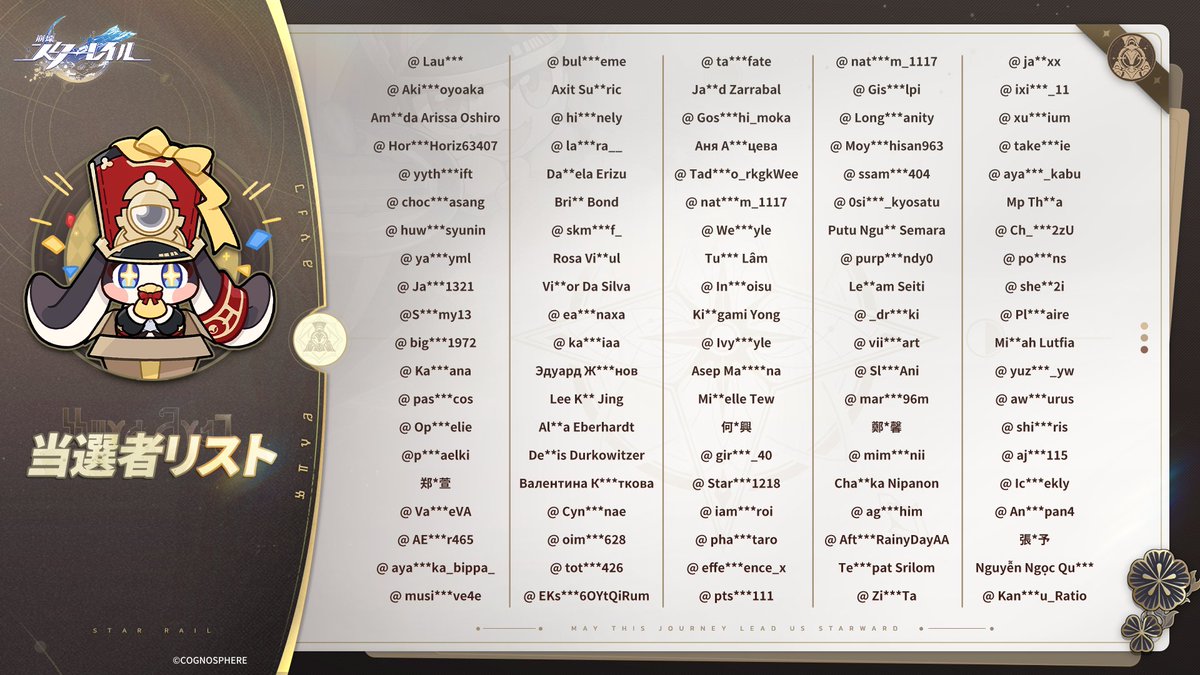 崩壊
スターレイル
当選者リスト
STAR RAIL
©COGNOSPHERE
@ Lau***
@ Aki***oyoaka
Am**da Arissa Oshiro
@ Hor***Horiz63407
@ yyth***ift
@ choc***asang
@ huw***syunin
@ ya***yml
@ Ja***1321
@S***my13
@ big***1972
@ Ka***ana
@ pas***cos
@ Op***elie
@p***aelki
郑*萱
@ Va***eVA
@ AE***r465
@ aya***ka_bippa_
@ musi***ve4e
@ bul***eme
Axit Su**ric
@ hi***nely
@ la***ra__
Da**ela Erizu
Bri** Bond
@ skm***f_
Rosa Vi**ul
Vi**or Da Silva
@ ea***naxa
@ ka***iaa
Эдуард Ж***нов
Lee K** Jing
Al**a Eberhardt
De**is Durkowitzer
Валентина К***ткова
@ Cyn***nae
@ oim***628
@ tot***426
@ EKs***6OYtQiRum
@ ta***fate
Ja**d Zarrabal
@ Gos***hi_moka
Аня А***цева
@ Tad***o_rkgkWee
@ nat***m_1117
@ We***yle
Tu*** Lâm
@ In***oisu
Ki**gami Yong
@ Ivy***yle
Asep Ma****na
Mi**elle Tew
何*興
@ gir***_40
@ Star***1218
@ iam***roi
@ pha***taro
@ effe***ence_x
@ pts***111
@ nat***m_1117
@ Gis***lpi
@ Long***anity
@ Moy***hisan963
@ ssam***404
@ 0si***_kyosatu
Putu Ngu** Semara
@ purp***ndy0
Le**am Seiti
@ _dr***ki
@ vii***art
@ Sl***Ani
@ mar***96m
鄭*馨
@ mim***nii
Cha**ka Nipanon
@ ag***him
@ Aft***RainyDayAA
Te***pat Srilom
@ Zi***Ta
@ ja**xx
@ ixi***_11
@ xu***ium
@ take***ie
@ aya***_kabu
Mp Th**a
@ Ch_***2zU
@ po***ns
@ she**2i
@ Pl***aire
Mi**ah Lutfia
@ yuz***_yw
@ aw***urus
@ shi***ris
@ aj***115
@ Ic***ekly
@ An***pan4
張*予
Nguyễn Ngọc Qu***
@ Kan***u_Ratio
MAY THIS JOURNEY LEAD US STARWARD